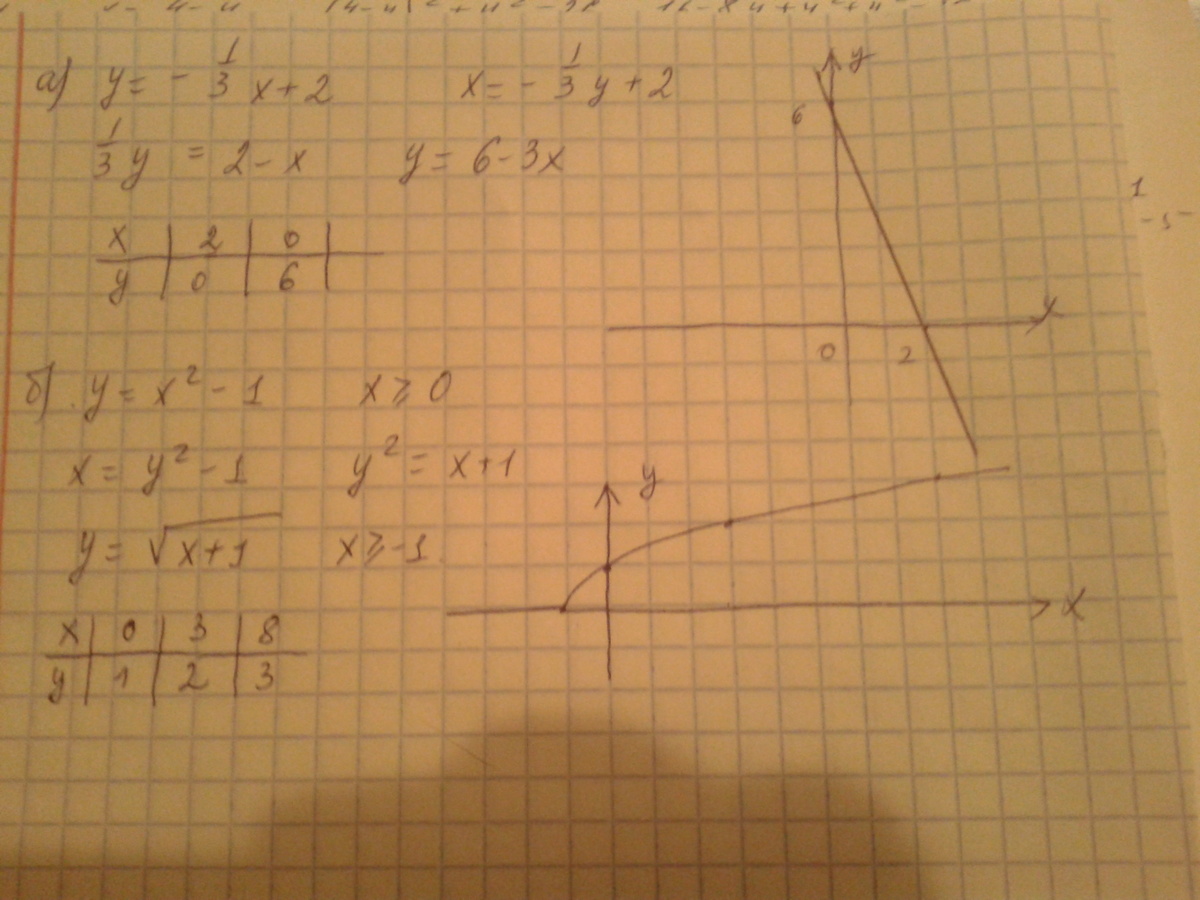 а) y = - 1/3 x + 2    x = - 1/3 y + 2
1/3 y = 2 - x    y = 6 - 3x
x | 2 | 0 |
y | 0 | 6 |
y
6
0 2
б) y = x² - 1    x ≥ 0
x = y² - 1    y² = x + 1
y = √x+1    x ≥ -1
x | 0 | 3 | 8
y | 1 | 2 | 3
y
x